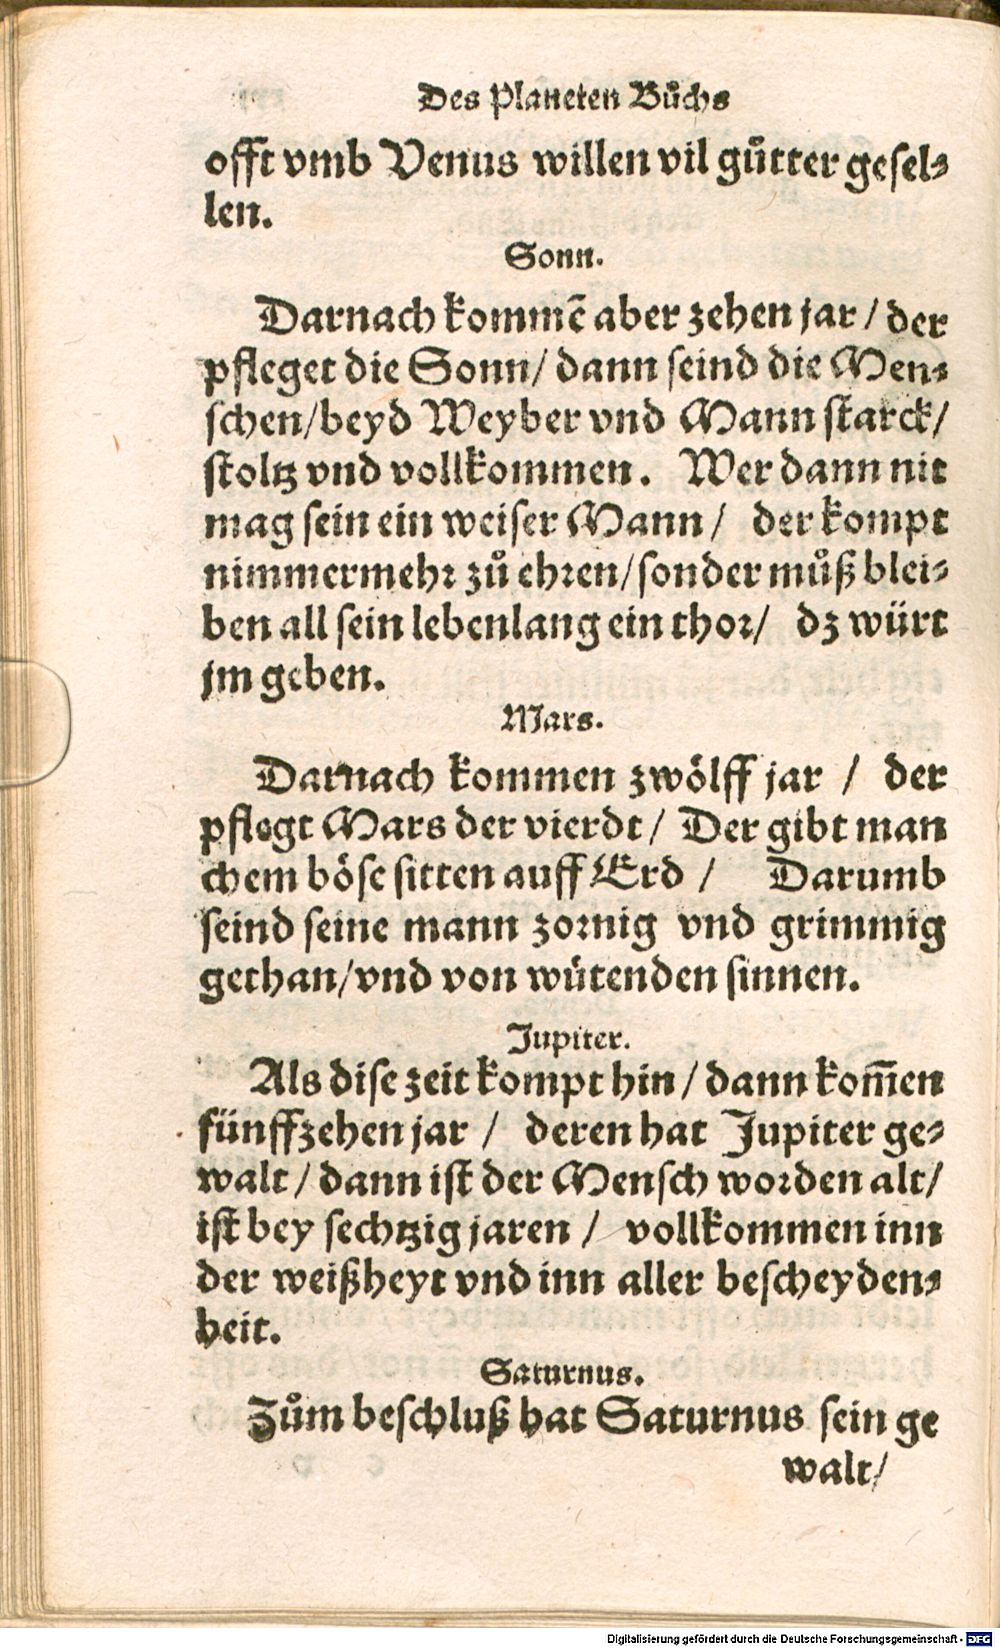 Des Planeten Bůchs
offt vmb Venus willen vil gůtter gesel⸗
len.
Sonn.
Darnach kommẽ aber zehen jar / der
pfleget die Sonn/ dann seind die Men⸗
schen/beyd Weyber vnd Mann starck/
stoltz vnd vollkommen. Wer dann nit
mag sein ein weiser Mann/ der kompt
nimmermehr zů ehren/sonder můß blei⸗
ben all sein lebenlang ein thor/ dz würt
jm geben.
Mars.
Darnach kommen zwölff jar / der
pflegt Mars der vierdt/ Der gibt man
chem böse sitten auff Erd / Darumb
seind seine mann zornig vnd grimmig
gethan/vnd von wütenden sinnen.
Jupiter.
Als dise zeit kompt hin/ dann kom̃en
fünffzehen jar / deren hat Jupiter ge⸗
walt / dann ist der Mensch worden alt/
ist bey sechtzig jaren / vollkommen inn
der weißheyt vnd inn aller bescheyden⸗
heit.
Saturnus.
Zům beschluß hat Saturnus sein ge
walt/
Digitalisierung gefördert durch die Deutsche Forschungsgemeinschaft - DFG